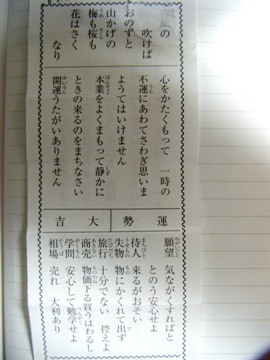 風の
吹けば
おのずと
山かげの
梅も桜も
花はさく
なり
心をかたくもって 一時の
不運にあわてさわぎ思いま
ようてはいけません
本業をよくまもって静かに
ときの来るのをまちなさい
開運うたがいありません
運勢 大吉
願望 気ながくすればと
とのう安心せよ
待人 来るがおそい
失物 物にかくれて出ず
旅行 十分でない 控えよ
商売 物価下る買うはわるし
学問 安心して勉学せよ
相場 売れ 大利あり